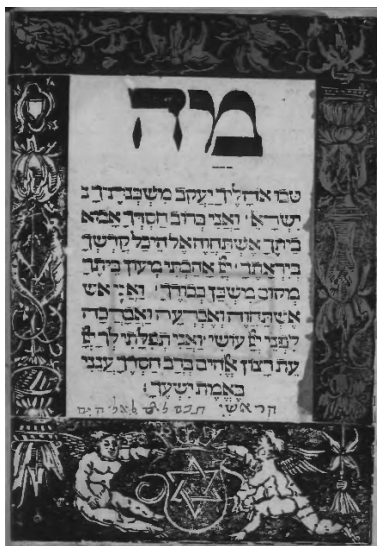 מַה
טבו אהליך יעקב משכנתיך
ישראל ואני ברוב חסדך אבוא
ביתך אשתחוה אל היכל קדשך
ביראתך יי אהבתי מעון ביתך
מקום משכן כבודך ואני אש
אשתחוה ואכרעה ואברכה
לפני יי עושי ואני תפלתי לך יי
עת רצון אלהים ברב חסדך ענני
באמת ישעך